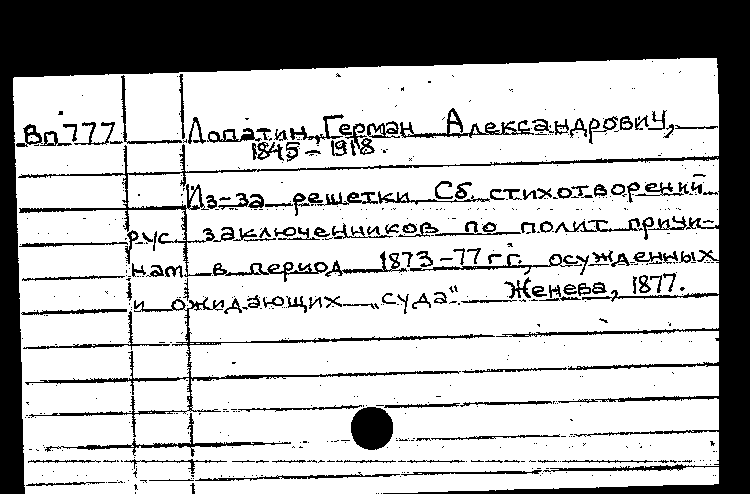 Вп777 Лопатин, Герман Александрович,
1845 – 1918.
Из-за решетки. Сб. стихотворений
рус. заключенников по полит. причи-
нам в период 1873–77 гг., осужденных
и ожидающих „суда". Женева, 1877.